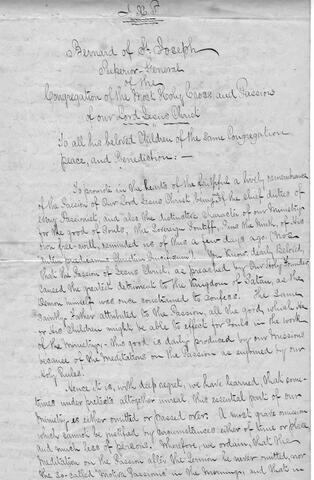 J. X. P.
Bernard of St. Joseph
Superior-General
of the
Congregation of the Most Holy Cross and Passion
of our Lord Jesus Christ
To all his beloved Children of the same Congregation
peace, and Benediction:—
To promote in the hearts of the faithful a lively remembrance
of the Passion of Our Lord Jesus Christ, being the chief duties of
every Passionist, and also the distinctive character of our ministry
for the good of Souls, the Sovereign Pontiff, Pius the Ninth, of
reminded us of this a few days ago, "Nos
autem praedicamus Christum Crucifixum". You know, dearly Beloved,
that the Passion of Jesus Christ, as preached by our Holy Founder,
caused the greatest detriment to the Kingdom of Satan, as the
Demon himself was once constrained to confess. The same
Saintly Father attributed to the Passion, all the good, which he
or His Children might be able to effect for Souls in the work
of the ministry. This good is daily produced by our missions
because of the Meditations on the Passion as enjoined by our
Holy Rules.
Hence it is, with deep regret, we have learned, that some-
times under pretexts altogether unreal this essential part of our
ministry is either omitted or passed over. A most grave omission
which cannot be justified by circumstances either of time or place
and much less of persons. Wherefore, we ordain, that the
Meditation on the Passion after the Sermon be never omitted, nor
the so-called "Motivo Passionis" in the mornings; and that in